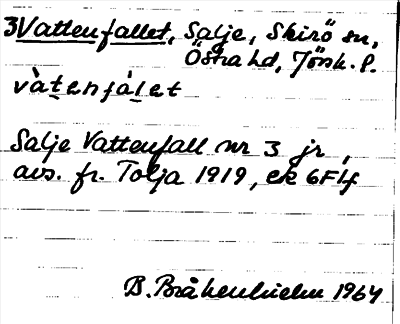 3 Vattenfallet, Salje, Skirö sn,
Östra hd, Jönk. l.
vàtenfálet
Salje Vattenfall nr 3 jr,
avs. fr. Tolja 1919, ek 6F4f
B. 1964